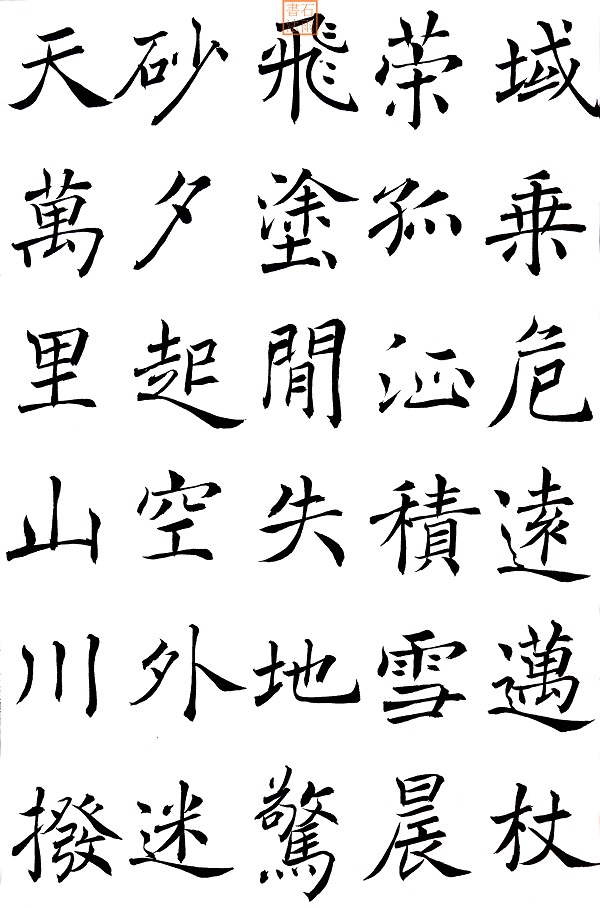 域乗危遠邁杖
策孤征積雪晨
飛塗閒失地驚
砂夕起空外迷
天萬里山川撥